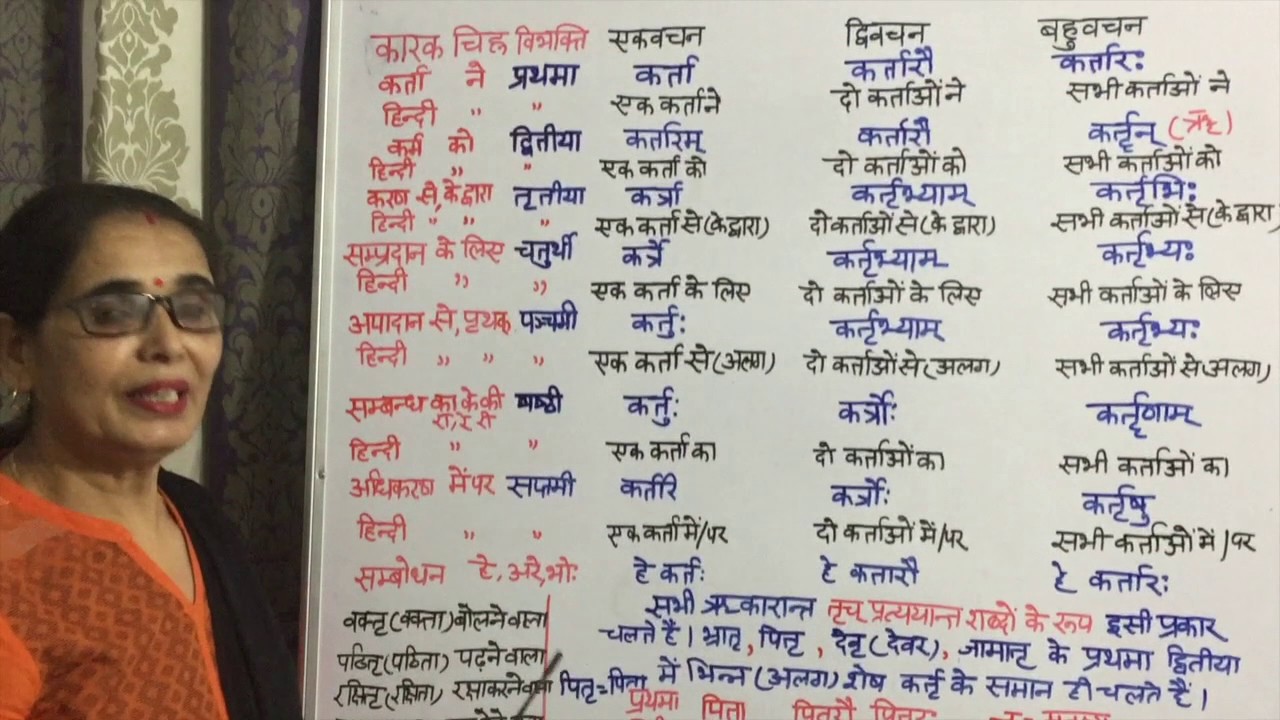 कारक चिह्न विभक्ति एकवचन द्विवचन बहुवचन
कर्ता ने प्रथमा कर्ता कर्तारौ कर्तारः
हिन्दी " " एक कर्ता ने दो कर्ताओं ने सभी कर्ताओं ने
कर्म को द्वितीया कर्तारम् कर्तारौ कर्तॄन् (ॠ)
हिन्दी " " एक कर्ता को दो कर्ताओं को सभी कर्ताओं को
करण से, के द्वारा तृतीया कर्त्रा कर्तृभ्याम् कर्तृभिः
हिन्दी " " " एक कर्ता से (के द्वारा) दो कर्ताओं से (के द्वारा) सभी कर्ताओं से (के द्वारा)
सम्प्रदान के लिए चतुर्थी कर्त्रे कर्तृभ्याम् कर्तृभ्यः
हिन्दी " " एक कर्ता के लिए दो कर्ताओं के लिए सभी कर्ताओं के लिए
अपादान से, पृथक् पञ्चमी कर्तुः कर्तृभ्याम् कर्तृभ्यः
हिन्दी " " " एक कर्ता से (अलग) दो कर्ताओं से (अलग) सभी कर्ताओं से (अलग)
सम्बन्ध का, के, की षष्ठी कर्तुः कर्त्रोः कर्तॄणाम्
रा, रे, री
हिन्दी " " एक कर्ता का दो कर्ताओं का सभी कर्ताओं का
अधिकरण में, पर सप्तमी कर्तरि कर्त्रोः कर्तृषु
हिन्दी " " एक कर्ता में/पर दो कर्ताओं में/पर सभी कर्ताओं में/पर
सम्बोधन हे, अरे, भोः हे कर्तः हे कर्तारौ हे कर्तारः
वक्तृ (वक्ता) बोलने वाला
पठितृ (पठिता) पढ़ने वाला
रक्षितृ (रक्षिता) रक्षा करने वाला
सभी ऋकारान्त तृच् प्रत्ययान्त शब्दों के रूप इसी प्रकार
चलते हैं। भ्रातृ, पितृ, देवृ (देवर), जामातृ के प्रथमा द्वितीया
पितृ = पिता में भिन्न (अलग) शेष कर्तृ के समान ही चलते हैं।
प्रथमा पिता पितरौ पितरः